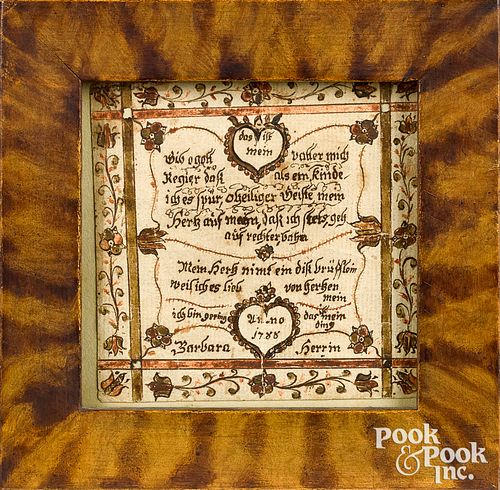 das ist
mein
Gib o gott vatter mich
Regier daß als ein Kinde
ich es spür, o heiliger Geiste mein
Hertz auf mach, daß ich stets geh
auf rechter bahn
Mein Hertz nimt ein diß
weil ich es lieb von hertzen
mein
ich bin das mein
ding
Anno
1788
Barbara Herrin
POOK
& POOK
INC.